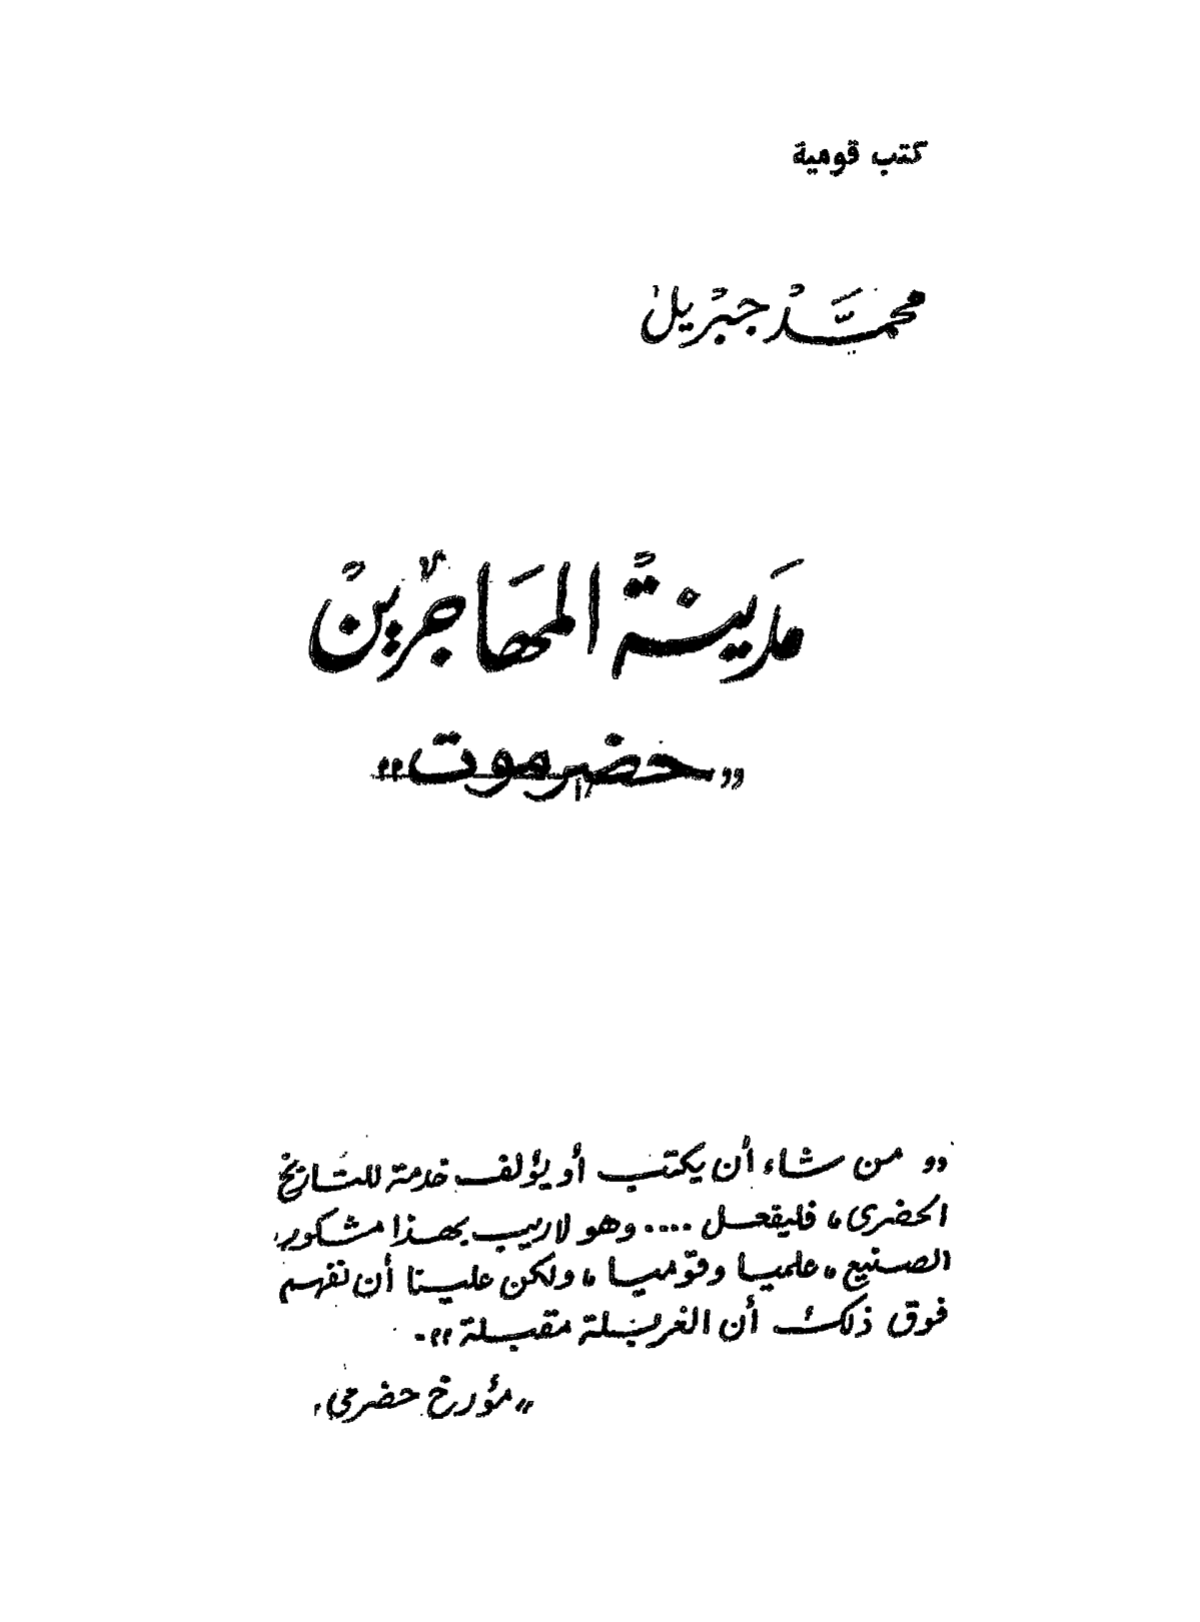 كتب قومية
محمَّد جبريل
مدينة المهاجرين
"حضرموت"
"من شاء أن يكتب أو يؤلف خدمة للتاريخ
الحضرى، فليفعل .... وهو لا ريب بهذا مشكور
الصنيع، علميا وقوّميا، ولكن علينا أن نفهم
فوق ذلك أن الغربلة مقبلة".
"مؤرخ حضرمى"